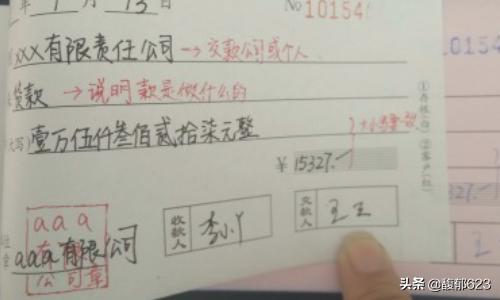 年 1 月 13 日 No 10154
xxx有限责任公司 →交款公司或个人
货款 →说明款是做什么的
大写)壹万伍仟叁佰贰拾柒元整
¥ 15327.—
①存根(白) ②客户(红)
收款人 李小丫 交款人 王王
aaa有限公司
aaa
公司章
0154
327.—
头条 @馥郁623